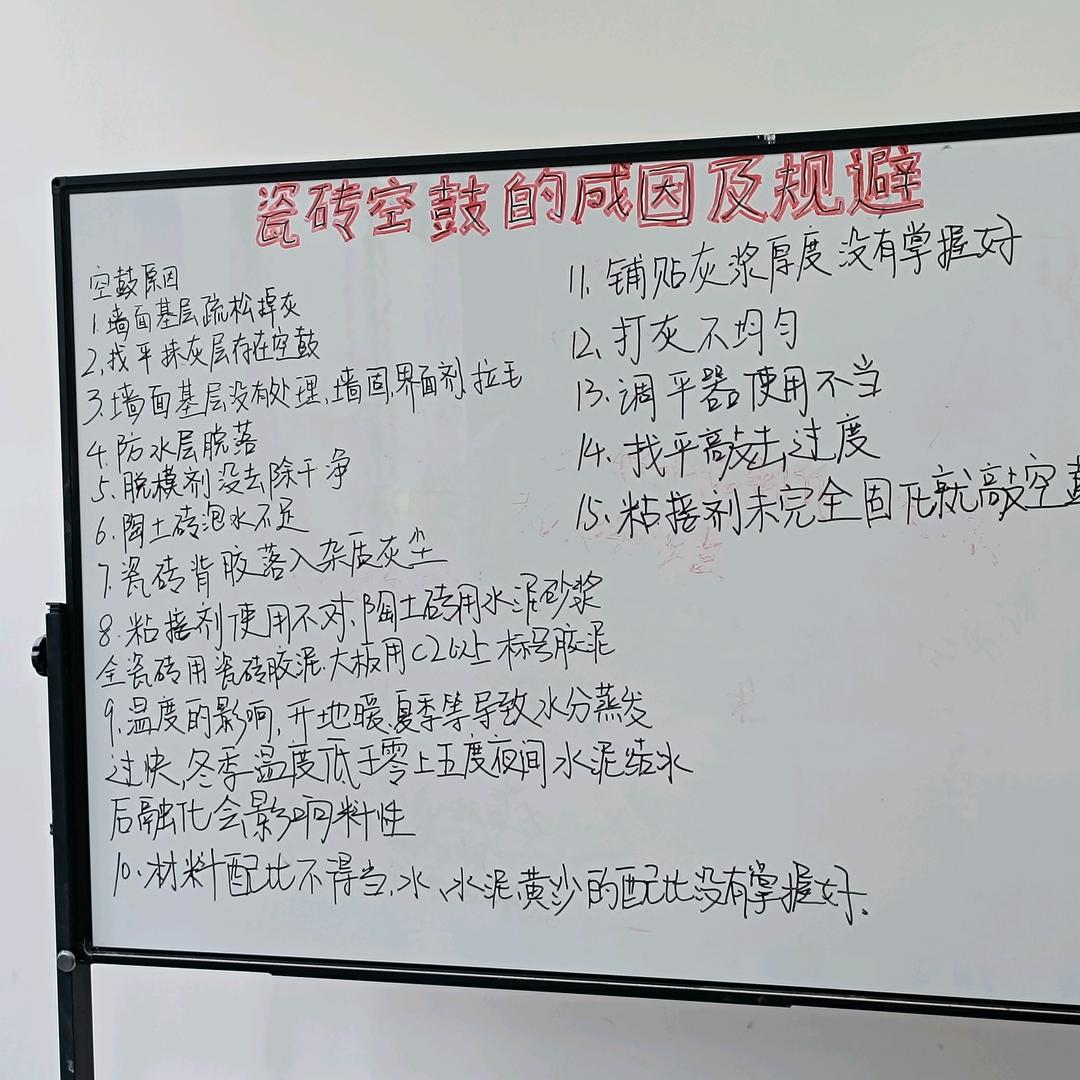 瓷砖空鼓的成因及规避
空鼓原因
1.墙面基层疏松掉灰
2.找平抹灰层存在空鼓
3.墙面基层没有处理,墙固,界面剂,拉毛
4.防水层脱落
5.脱模剂没去除干净
6.陶土砖泡水不足
7.瓷砖背胶落入杂质灰尘
8.粘接剂使用不对,陶土砖用水泥砂浆
全瓷砖用瓷砖胶泥.大板用C2以上标号胶泥
9.温度的影响,开地暖,夏季等导致水分蒸发
过快,冬季温度低于零上五度夜间水泥结冰
后融化会影响料性
10.材料配比不得当,水、水泥,黄沙的配比没有掌握好.
11.铺贴灰浆厚度没有掌握好
12.打灰不均匀
13.调平器使用不当
14.找平敲击过度
15.粘接剂未完全固化就敲空鼓